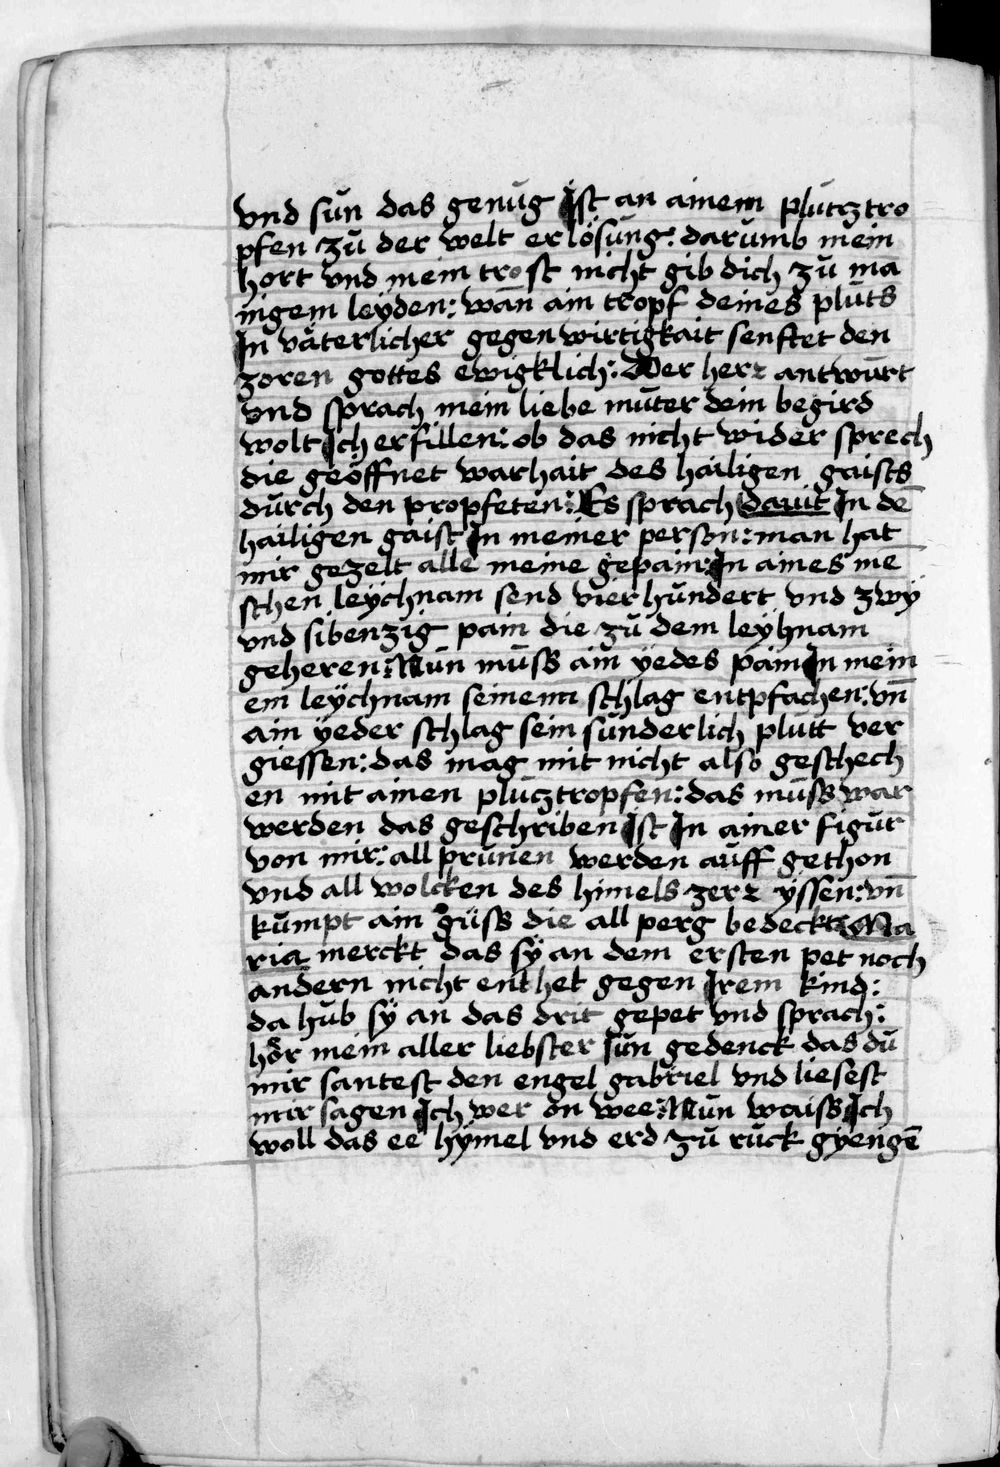 vnd sun das genug Ist an ainem plutz tro
pfen zu der welt erlösung: darumb mein
hort vnd mein trost nicht gib dich zu ma
nigem leyden: wan̄ ain tropf deines pluts
In väterlicher gegenwirtigkait senftet den
zoren gottes ewigklich: Der herz antwurt
vnd sprach mein liebe muter dein begird
wolt Ich erfillen: ob das nicht wider sprech
die geöffnet warhait des hailigen gaists
durch den propfeten: Es sprach dauit In dē
hailigen gaist In meiner person: man hat
mir gezelt alle meine gepain: In aines mē
schen leÿchnam send vier hundert vnd zwÿ
vnd sibenzig pain die zu dem leÿhnam
geheren: Nun muss ain ÿedes pain In mein
em leÿchnam seinenn schlag entpfachen: vn̄
ain ÿeder schlag sein sunderlich plutt ver
giessen: das mag mit nicht also geschech
en mit ainen plutztropfen: das muss war
werden das geschriben Ist In ainer figur
von mir: all prunen werden auff gethon
vnd all wolcken des himels zerz ÿssen: vn̄
kumpt ain güss die all perg bedeckt: Ma
ria merckt das sÿ an dem ersten pet noch
andern nicht enthet gegen Irem kind:
da hub sÿ an das drit gepet vnd sprach:
hör mein aller liebster sun gedenck das du
mir santest den engel gabriel vnd liesest
mir sagen Ich wer on wee: Nun waiss Ich
woll das ee hÿmel vnd erd zu ruck gyengē